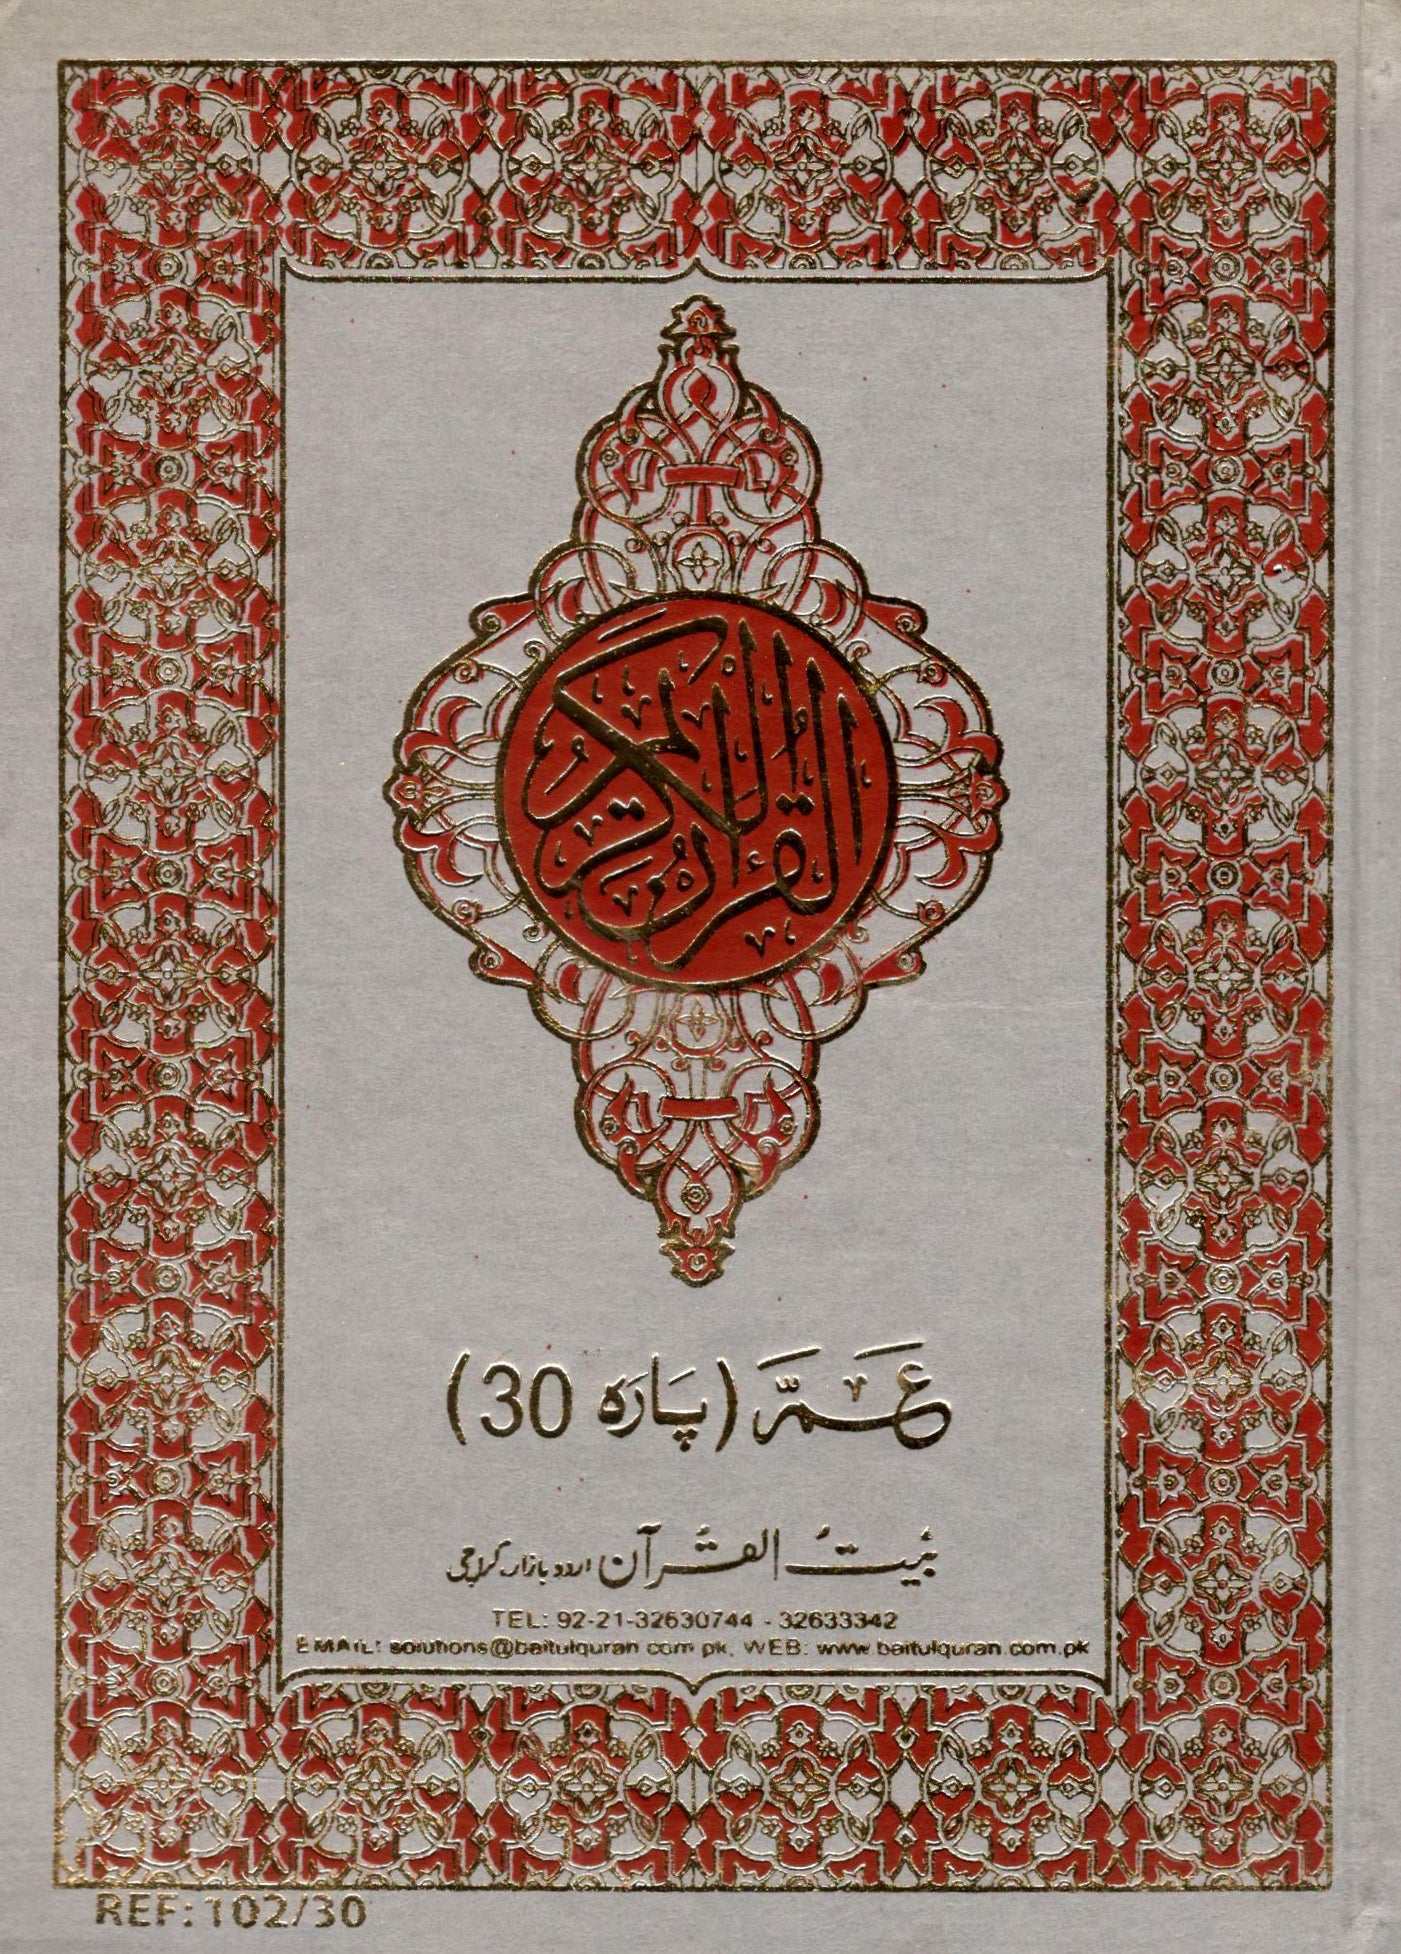 القرآن الكريم
عَمَّ (پَارَہ 30)
بَیتُ القُرآن اردو بازار، کراچی
TEL: 92-21-32630744 - 32633342
EMAIL: solutions@baitulquran.com.pk, WEB: www.baitulquran.com.pk
REF: 102/30